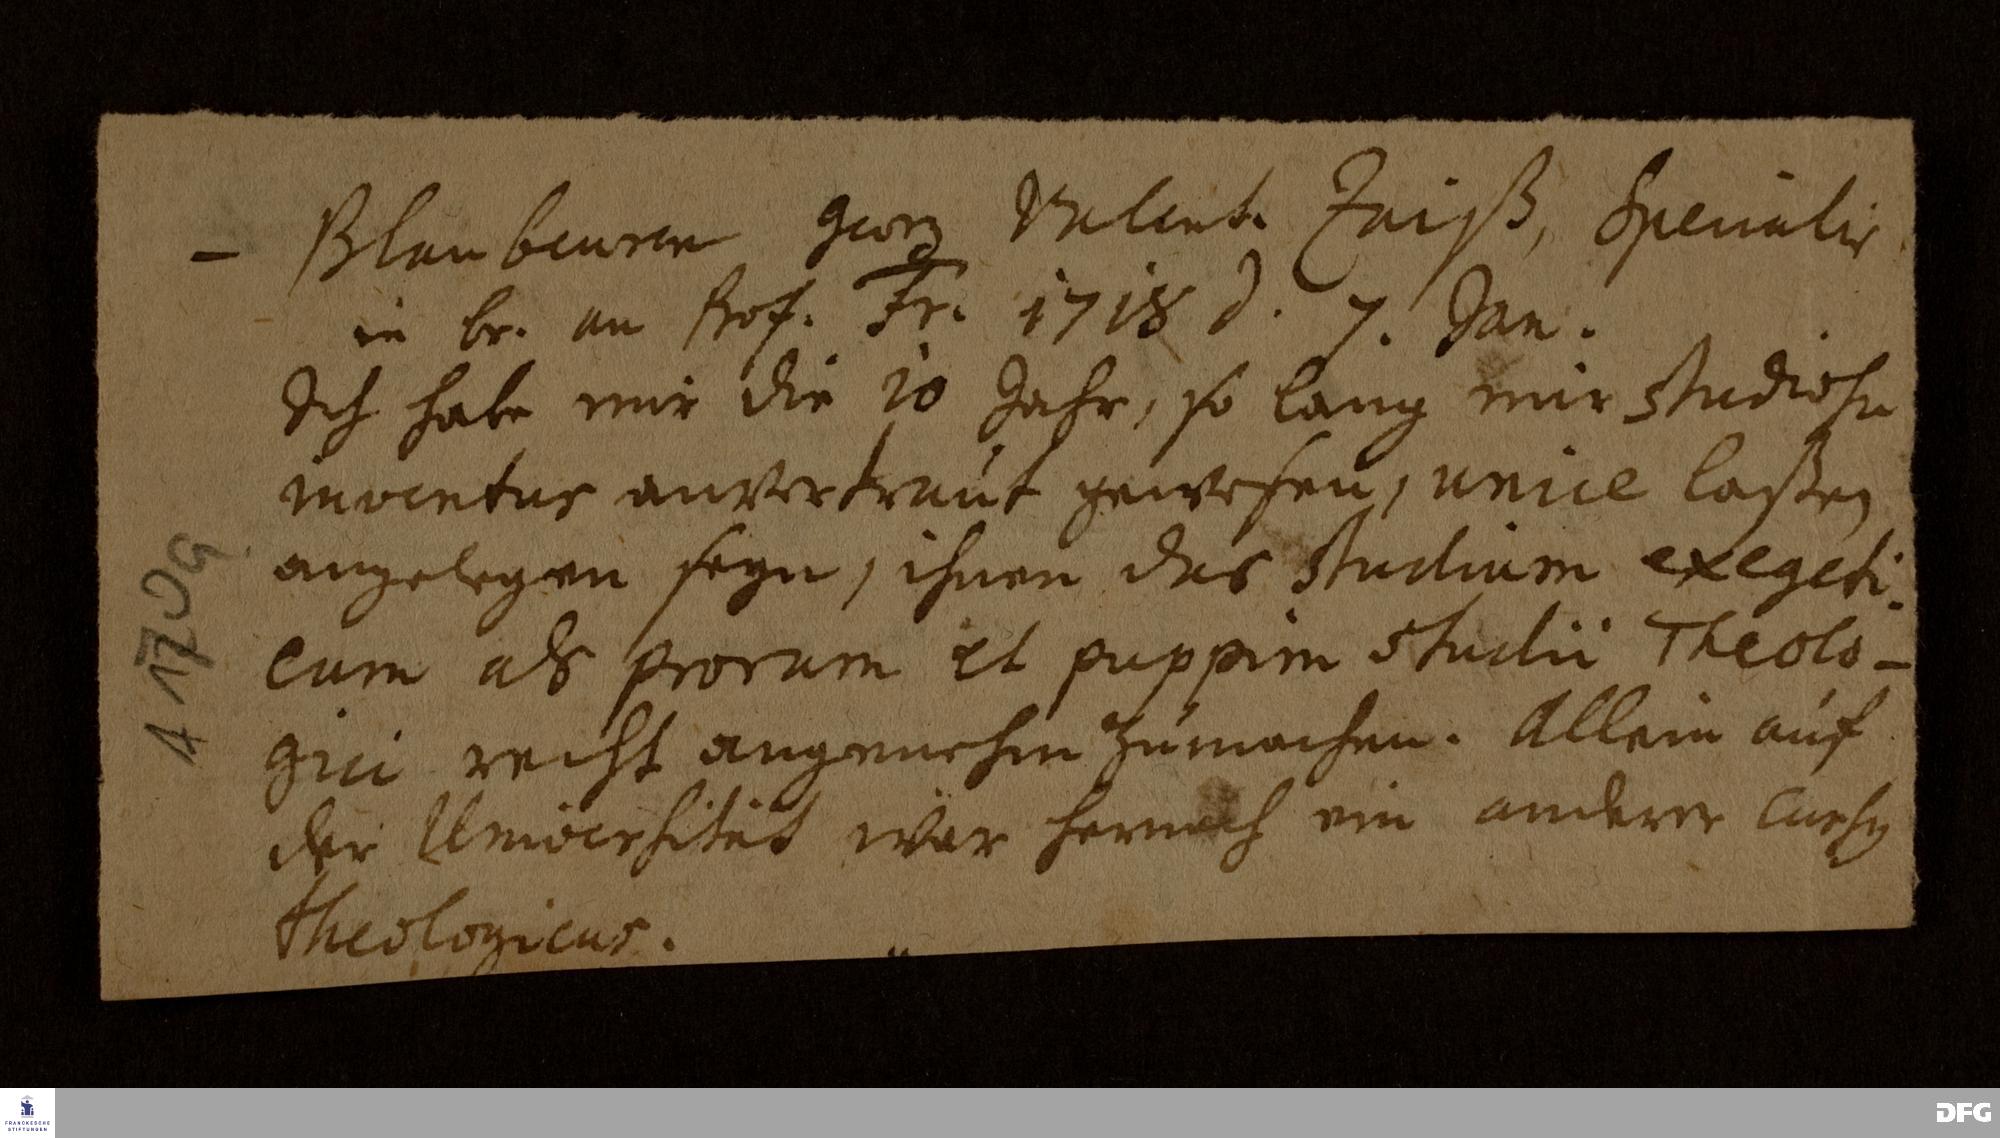 – Blaubeuren Georg Valent. Zeiß, Specialis
in br. an Prof. Fr. 1718 d. 7. Jan.
Ich habe mir die 10 Jahr, so lang mir studiosa
iuventus anvertraut gewesen, unice laßen
angelegen seyn, ihnen das studium exegeti-
cum als proram et puppim studii Theolo-
gici recht angenehm zumachen. Allein auf
der Universität war hernach ein anderer
theologicus.
A 170g
FRANCKESCHE
STIFTUNGEN
DFG